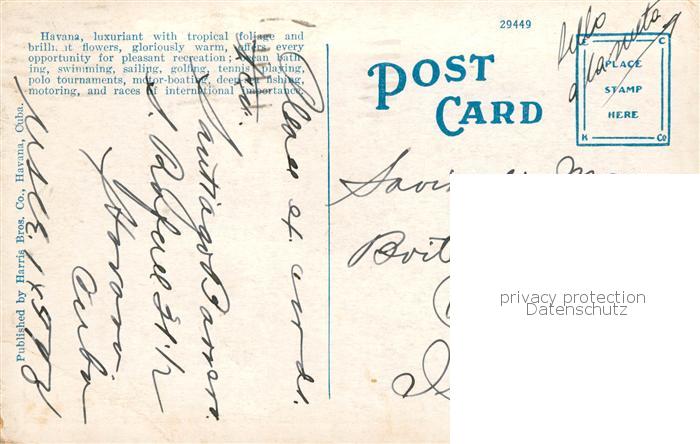 Havana, luxuriant with tropical foliage and
brilliant flowers, gloriously warm, offers every
opportunity for pleasant recreation; ocean bath-
ing, swimming, sailing, golfing, tennis playing,
polo tournaments, motor-boating, deep sea fishing,
motoring, and races of international importance.
Published by Harris Bros. Co., Havana, Cuba.
29449
POST
CARD
C
PLACE
STAMP
HERE
K
Co
Sello
a la vuelta
Please ex. cards.
Santiago Barrera.
S. Rafael 31½
Havana
Cuba
privacy protection
Datenschutz